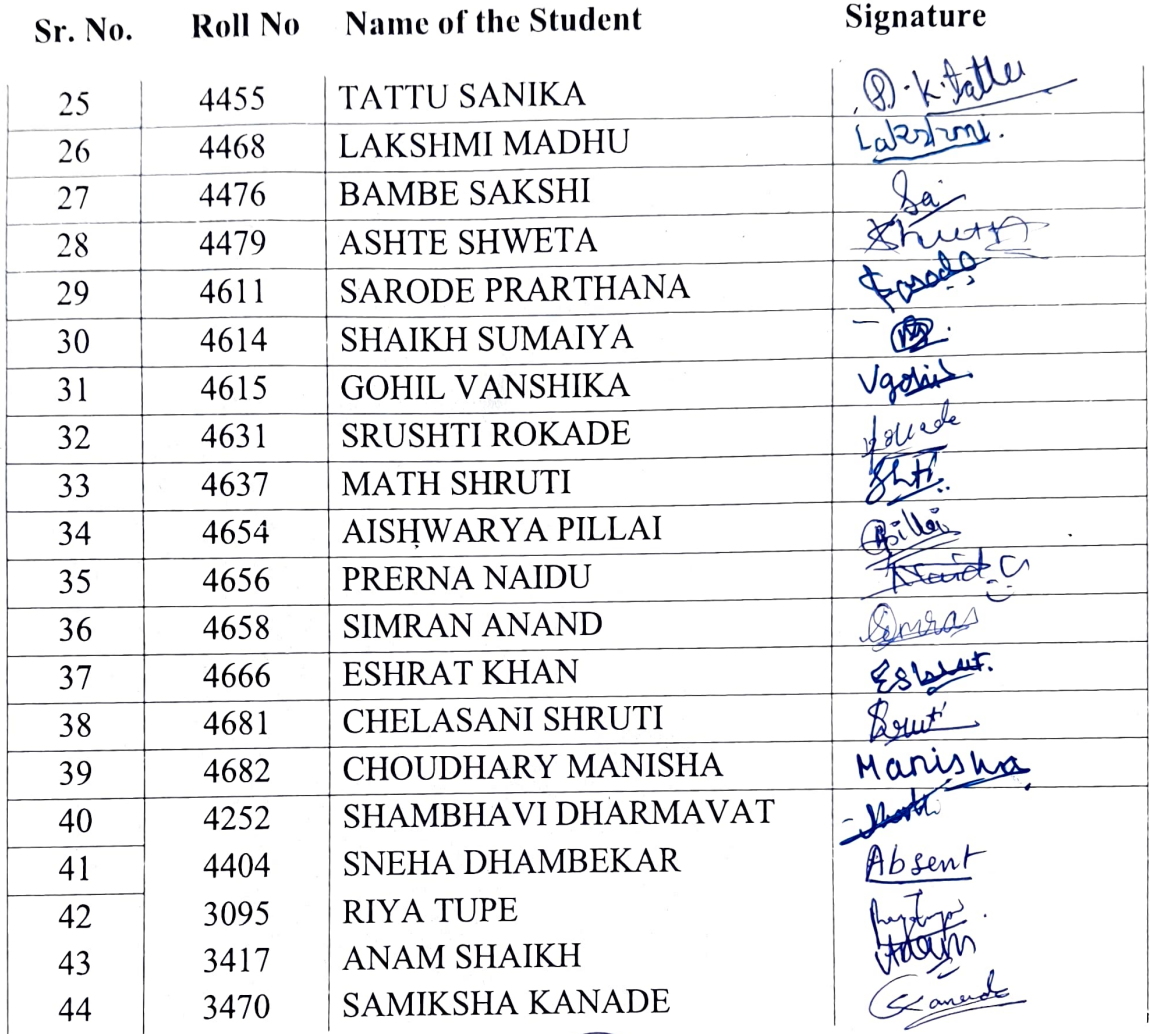 Sr. No. Roll No Name of the Student Signature
25 4455 TATTU SANIKA S.K.Tattu
26 4468 LAKSHMI MADHU Lakshmi.
27 4476 BAMBE SAKSHI Sai
28 4479 ASHTE SHWETA
29 4611 SARODE PRARTHANA
30 4614 SHAIKH SUMAIYA
31 4615 GOHIL VANSHIKA Vgohil
32 4631 SRUSHTI ROKADE
33 4637 MATH SHRUTI
34 4654 AISHWARYA PILLAI Pillai
35 4656 PRERNA NAIDU
36 4658 SIMRAN ANAND Simran
37 4666 ESHRAT KHAN Eshrat.
38 4681 CHELASANI SHRUTI
39 4682 CHOUDHARY MANISHA Manisha
40 4252 SHAMBHAVI DHARMAVAT
41 4404 SNEHA DHAMBEKAR Absent
42 3095 RIYA TUPE
43 3417 ANAM SHAIKH
44 3470 SAMIKSHA KANADE